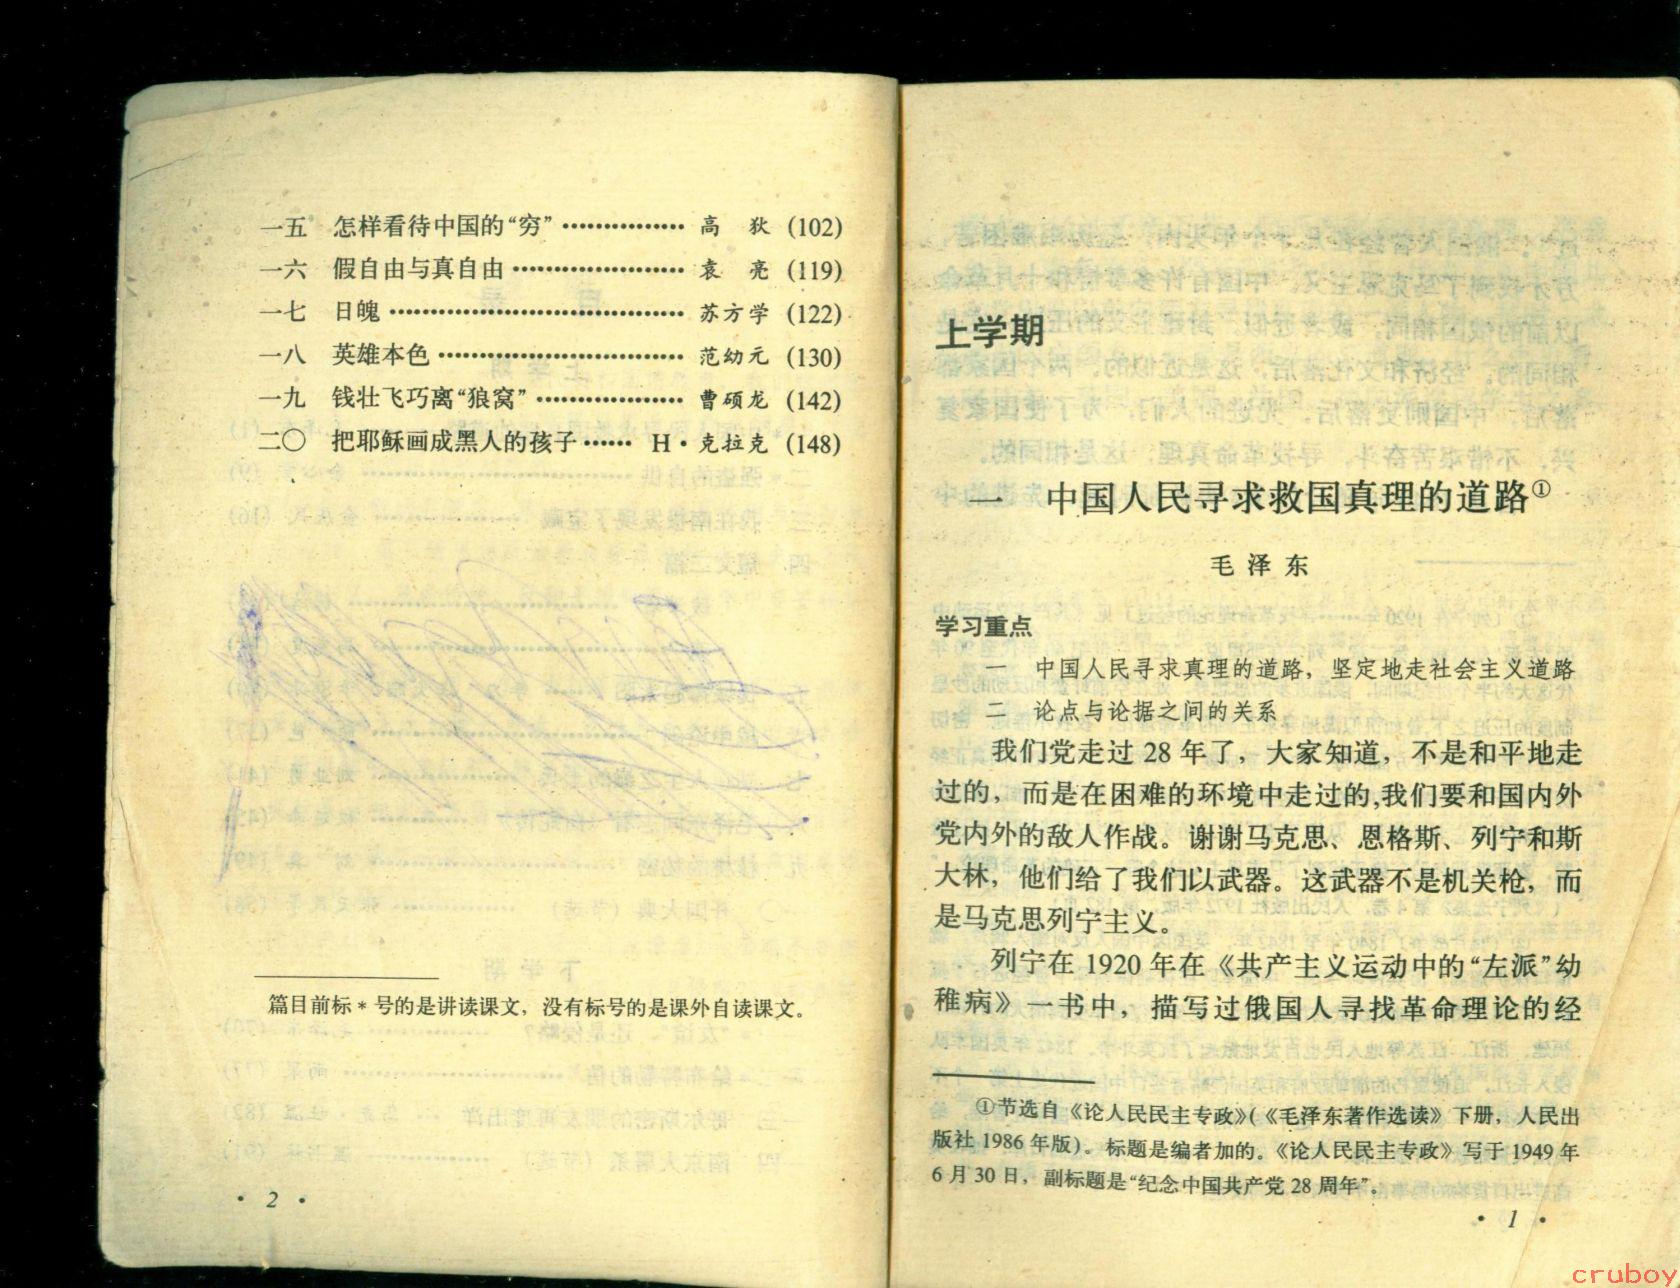 一五 怎样看待中国的“穷” …………… 高 狄 (102)
一六 假自由与真自由 ………………… 袁 亮 (119)
一七 日魄 ……………………………… 苏方学 (122)
一八 英雄本色 ………………………… 范幼元 (130)
一九 钱壮飞巧离“狼窝” ……………… 曹硕龙 (142)
二〇 把耶稣画成黑人的孩子 …… H·克拉克 (148)
篇目前标 * 号的是讲读课文，没有标号的是课外自读课文。
· 2 ·
上学期
一 中国人民寻求救国真理的道路①
毛泽东
学习重点
一 中国人民寻求真理的道路，坚定地走社会主义道路
二 论点与论据之间的关系
我们党走过 28 年了，大家知道，不是和平地走
过的，而是在困难的环境中走过的,我们要和国内外
党内外的敌人作战。谢谢马克思、恩格斯、列宁和斯
大林，他们给了我们以武器。这武器不是机关枪，而
是马克思列宁主义。
列宁在 1920 年在《共产主义运动中的“左派”幼
稚病》一书中，描写过俄国人寻找革命理论的经
①节选自《论人民民主专政》(《毛泽东著作选读》下册，人民出
版社 1986 年版)。标题是编者加的。《论人民民主专政》写于 1949 年
6 月 30 日，副标题是“纪念中国共产党 28 周年”。
· 1 ·
cruboy